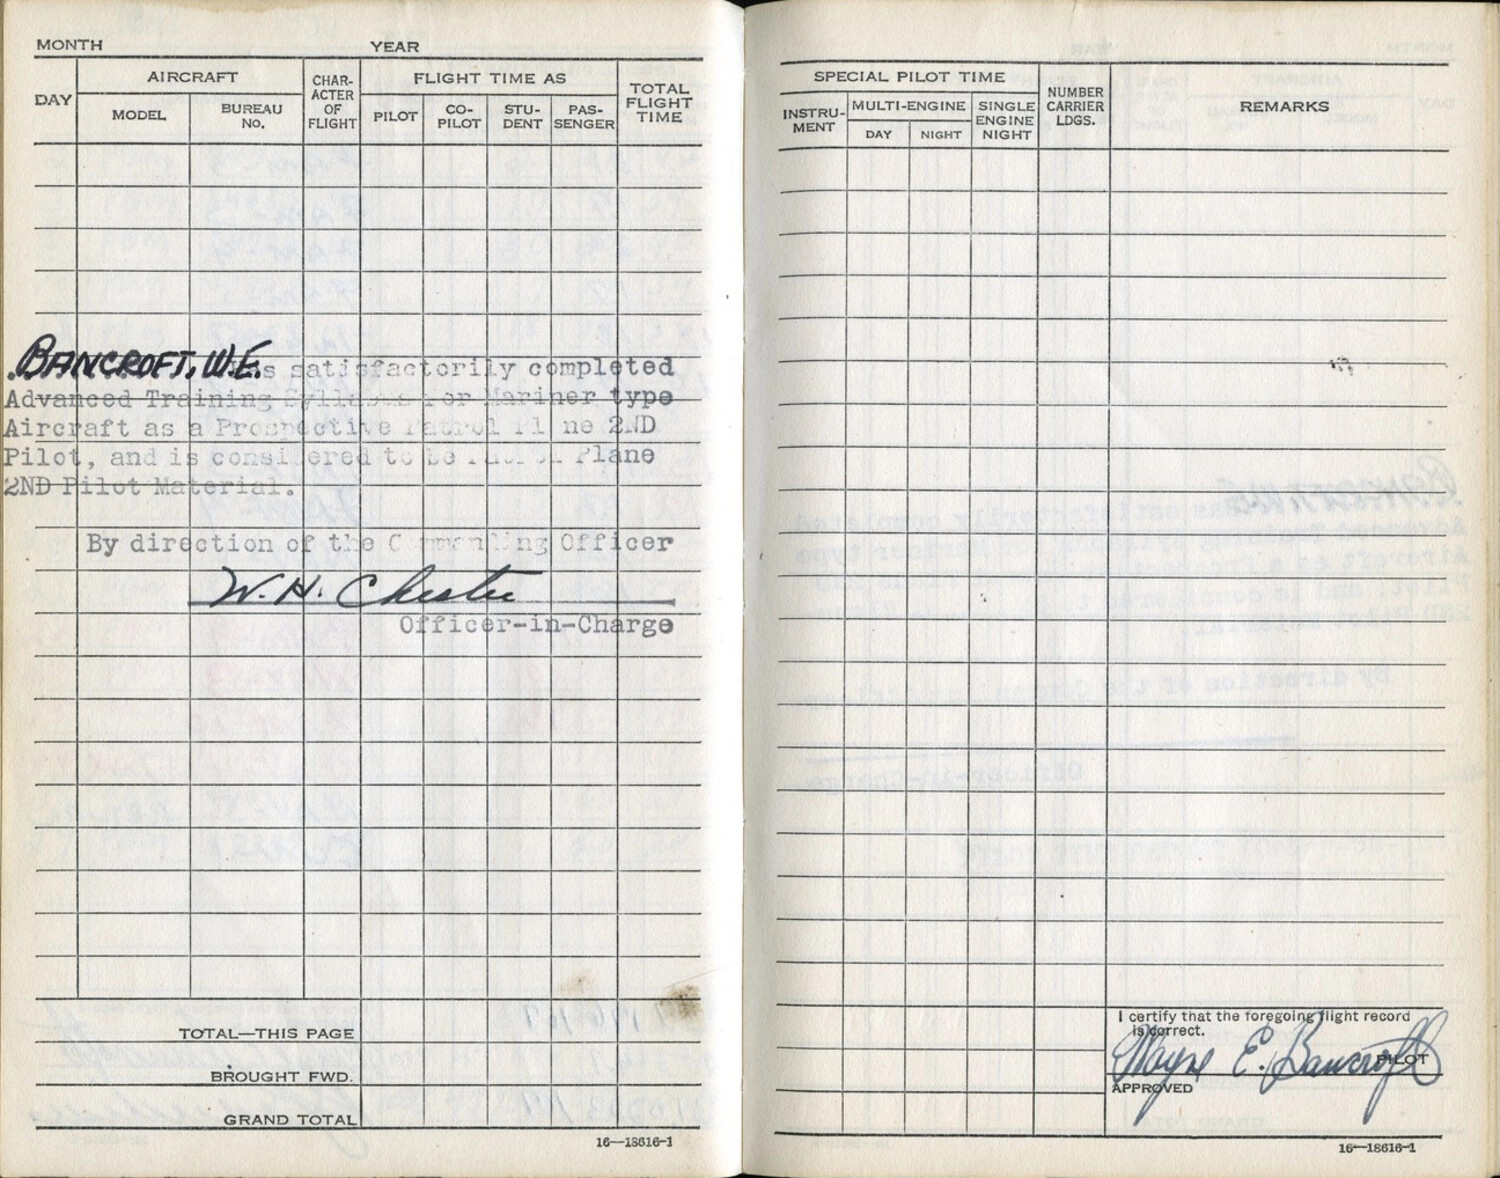 MONTH YEAR
DAY
AIRCRAFT
MODEL
BUREAU NO.
CHAR-
ACTER
OF
FLIGHT
FLIGHT TIME AS
PILOT
CO-
PILOT
STU-
DENT
PAS-
SENGER
TOTAL
FLIGHT
TIME
BANCROFT, W.E. has satisfactorily completed
Advanced Training Syllabus for Mariner type
Aircraft as a Prospective Patrol Plane 2ND
Pilot, and is considered to be Patrol Plane
2ND Pilot Material.
By direction of the Commanding Officer
W. H. Chester
Officer-in-Charge
TOTAL—THIS PAGE
BROUGHT FWD.
GRAND TOTAL
16—18616-1
SPECIAL PILOT TIME
INSTRU-
MENT
MULTI-ENGINE
DAY
NIGHT
SINGLE
ENGINE
NIGHT
NUMBER
CARRIER
LDGS.
REMARKS
I certify that the foregoing flight record
is correct.
Wayne E. Bancroft
PILOT
APPROVED
16—18616-1